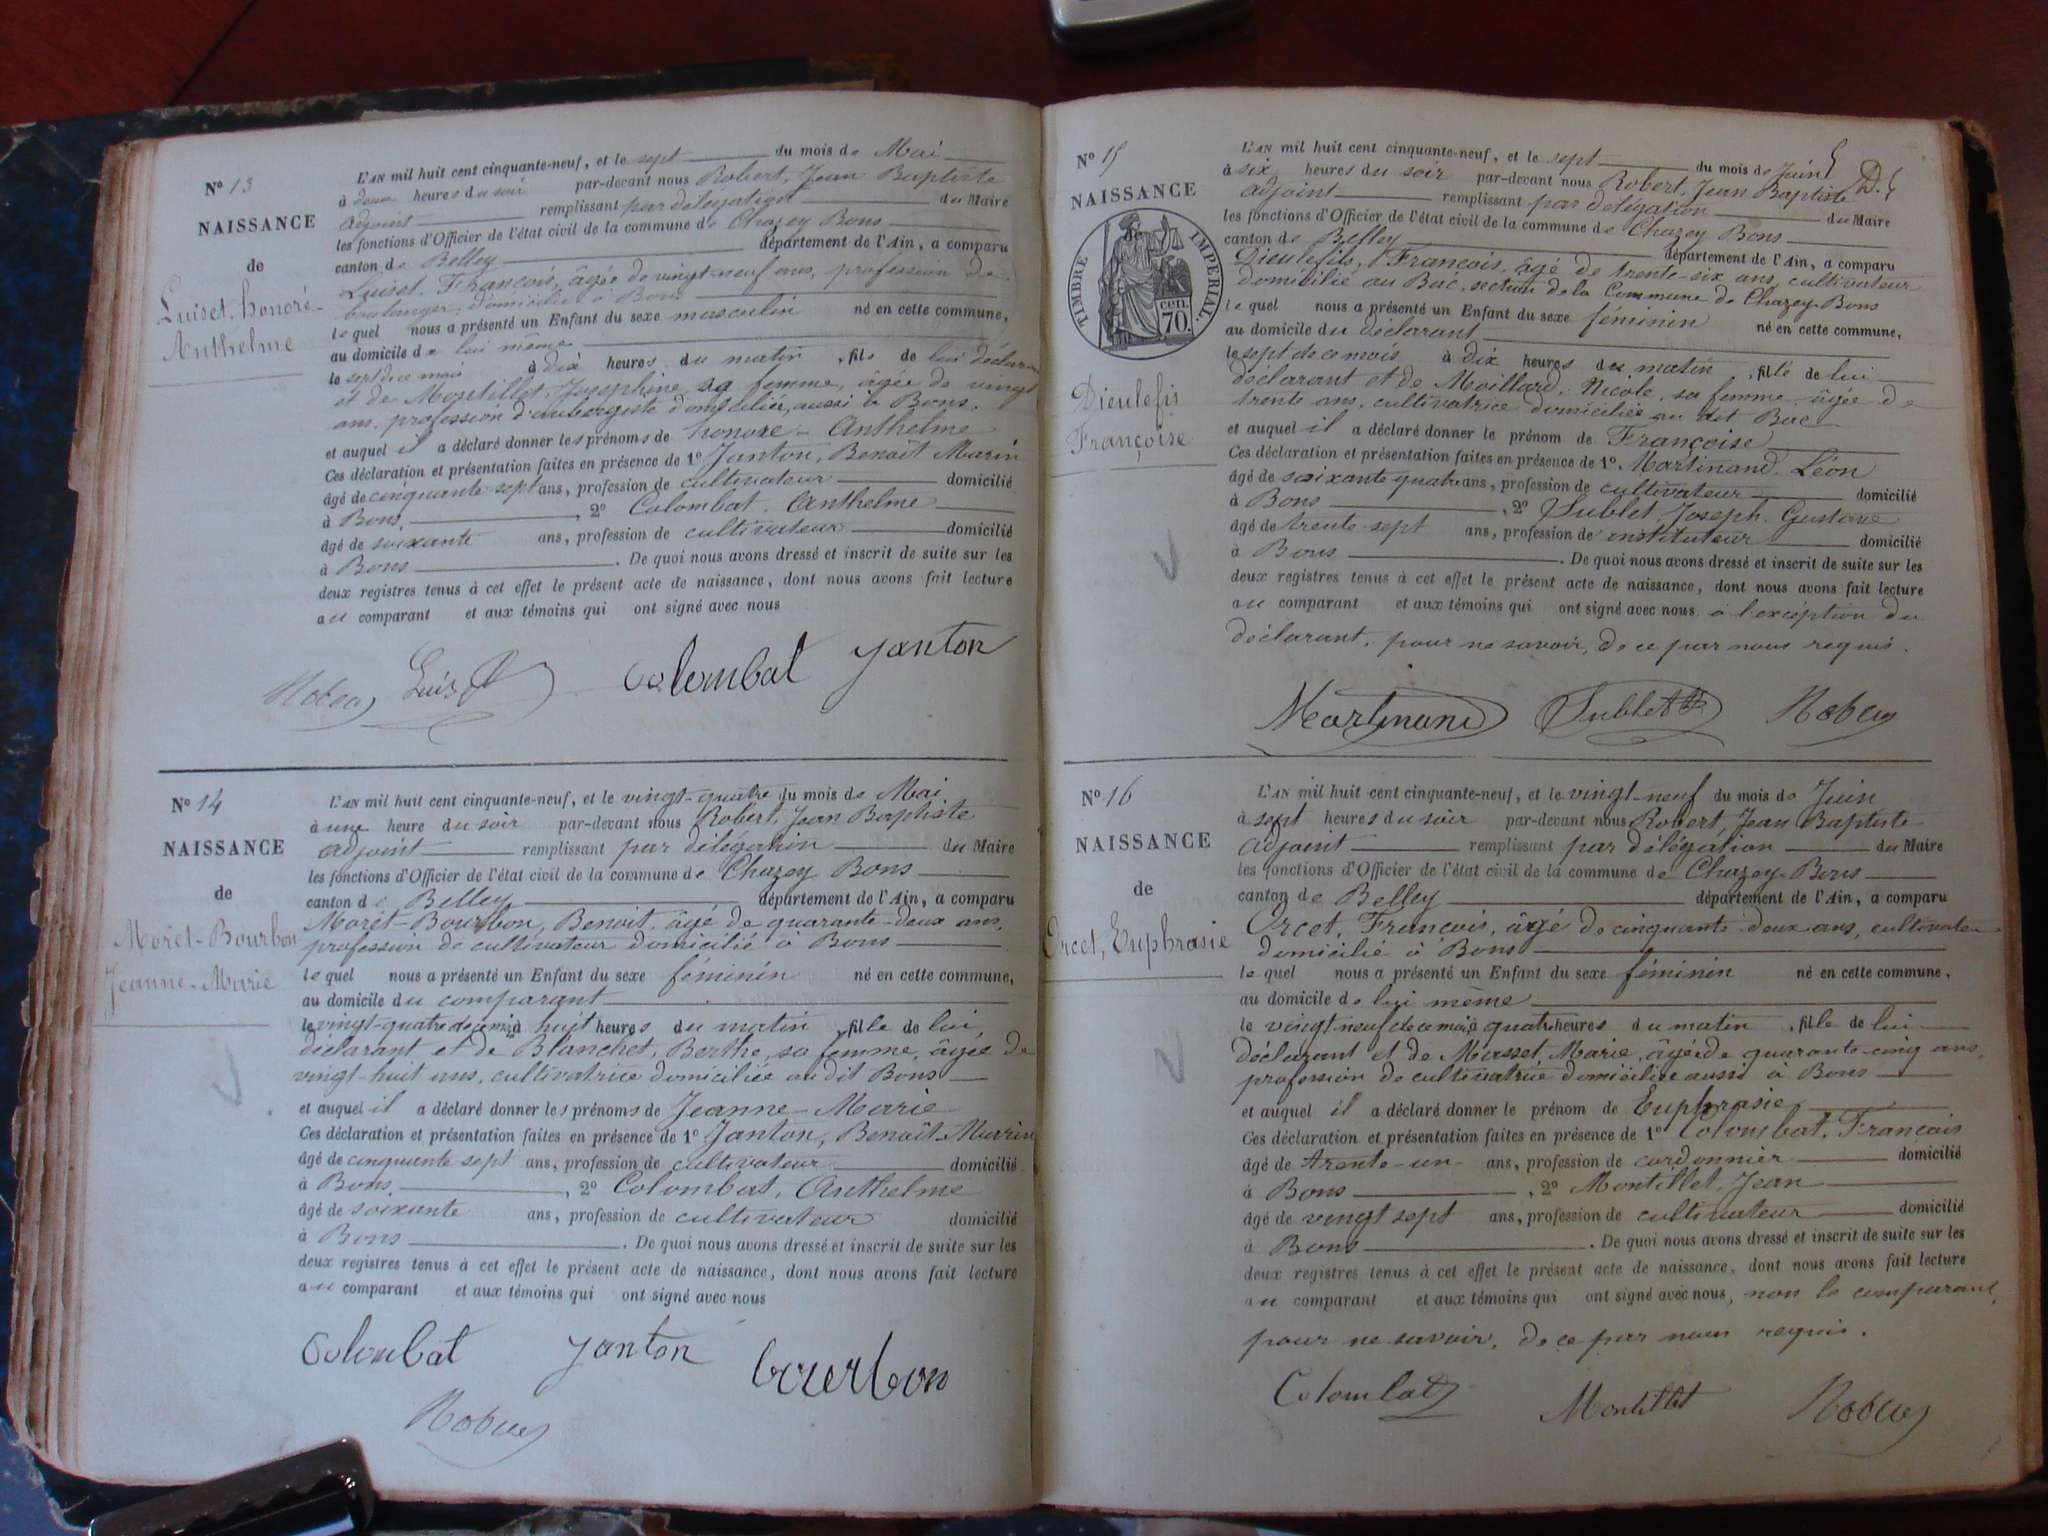 N° 13
NAISSANCE
de
Luiset, honoré-
Anthelme
L'AN mil huit cent cinquante-neuf, et le sept du mois de Mai
à deux heures du soir par-devant nous Robert, Jean Baptiste
adjoint remplissant par délégation du Maire
les fonctions d'Officier de l'état civil de la commune de Chazey Bons
canton de Belley département de l'Ain, a comparu
Luiset, François, âgée de vingt-neuf ans, profession de
boulanger, domicilié à Bons
lequel nous a présenté un Enfant du sexe masculin né en cette commune,
au domicile de lui même
le sept de ce mois à dix heures du matin, fils de lui déclarant
et de Montillet, Josephine, sa femme, âgée de vingt
ans, profession d'aubergiste domiciliée, aussi à Bons.
et auquel il a déclaré donner les prénoms de honoré - Anthelme
Ces déclaration et présentation faites en présence de 1° Janton, Benoît Marin
âgé de cinquante-sept ans, profession de cultivateur domicilié
à Bons, 2° Colombat, Anthelme
âgé de soixante ans, profession de cultivateur domicilié
à Bons. De quoi nous avons dressé et inscrit de suite sur les
deux registres tenus à cet effet le présent acte de naissance, dont nous avons fait lecture
au comparant et aux témoins qui ont signé avec nous
Robert Luiset Colombat Janton
N° 14
NAISSANCE
de
Moret-Bourbon
Jeanne-Marie
L'AN mil huit cent cinquante-neuf, et le vingt-quatre du mois de Mai
à une heure du soir par-devant nous Robert, Jean Baptiste
adjoint remplissant par délégation du Maire
les fonctions d'Officier de l'état civil de la commune de Chazey Bons
canton de Belley département de l'Ain, a comparu
Moret-Bourbon, Benoit, âgé de quarante-deux ans,
profession de cultivateur domicilié à Bons
lequel nous a présenté un Enfant du sexe féminin né en cette commune,
au domicile du comparant
le vingt-quatre de ce mois à huit heures du matin, fille de lui,
déclarant et de Blanchet, Berthe, sa femme, âgée de
vingt-huit ans, cultivatrice domiciliée au dit Bons
et auquel il a déclaré donner les prénoms de Jeanne-Marie
Ces déclaration et présentation faites en présence de 1° Janton, Benoît-Marin
âgé de cinquante sept ans, profession de cultivateur domicilié
à Bons, 2° Colombat, Anthelme
âgé de soixante ans, profession de cultivateur domicilié
à Bons. De quoi nous avons dressé et inscrit de suite sur les
deux registres tenus à cet effet le présent acte de naissance, dont nous avons fait lecture
au comparant et aux témoins qui ont signé avec nous
Colombat Janton bourbon
Robert
N° 15
NAISSANCE
TIMBRE IMPERIAL.
70 cen.
Dieulefis
Françoise
L'AN mil huit cent cinquante-neuf, et le sept du mois de Juin
à six heures du soir par-devant nous Robert, Jean Baptiste D.
adjoint remplissant par délégation du Maire
les fonctions d'Officier de l'état civil de la commune de Chazey Bons
canton de Belley département de l'Ain, a comparu
Dieulefils, François, âgé de trente-six ans, cultivateur
domicilié au Bac, section de la Commune de Chazey-Bons
lequel nous a présenté un Enfant du sexe féminin né en cette commune,
au domicile du déclarant
le sept de ce mois à dix heures du matin, fille de lui
déclarant et de Moillard, Nicole, sa femme, âgée de
trente ans, cultivatrice domiciliée au dit Bac
et auquel il a déclaré donner le prénom de Françoise
Ces déclaration et présentation faites en présence de 1°. Martinand, Léon
âgé de soixante quatre ans, profession de cultivateur domicilié
à Bons, 2° Sublet, Joseph-Gustave
âgé de trente-sept ans, profession de instituteur domicilié
à Bons. De quoi nous avons dressé et inscrit de suite sur les
deux registres tenus à cet effet le présent acte de naissance, dont nous avons fait lecture
au comparant et aux témoins qui ont signé avec nous à l'exception du
déclarant, pour ne savoir, de ce par nous requis.
Martinand Sublet Robert
N° 16
NAISSANCE
de
Orcet, Euphrasie
L'AN mil huit cent cinquante-neuf, et le vingt-neuf du mois de Juin
à sept heures du soir par-devant nous Robert, Jean Baptiste
adjoint remplissant par délégation du Maire
les fonctions d'Officier de l'état civil de la commune de Chazey-Bons
canton de Belley département de l'Ain, a comparu
Orcet, François, âgé de cinquante-deux ans, cultivateur
domicilié à Bons
lequel nous a présenté un Enfant du sexe féminin né en cette commune,
au domicile de lui même
le vingt-neuf de ce mois à quatre heures du matin, fille de lui
déclarant et de Masset, Marie, âgée de quarante-cinq ans,
profession de cultivatrice domiciliée aussi à Bons
et auquel il a déclaré donner le prénom de Euphrasie
Ces déclaration et présentation faites en présence de 1° Colombat, François
âgé de trente-un ans, profession de cordonnier domicilié
à Bons, 2° Montillet, Jean
âgé de vingt sept ans, profession de cultivateur domicilié
à Bons. De quoi nous avons dressé et inscrit de suite sur les
deux registres tenus à cet effet le présent acte de naissance, dont nous avons fait lecture
au comparant et aux témoins qui ont signé avec nous, non le comparant,
pour ne savoir, de ce par nous requis.
Colombat Montillet Robert